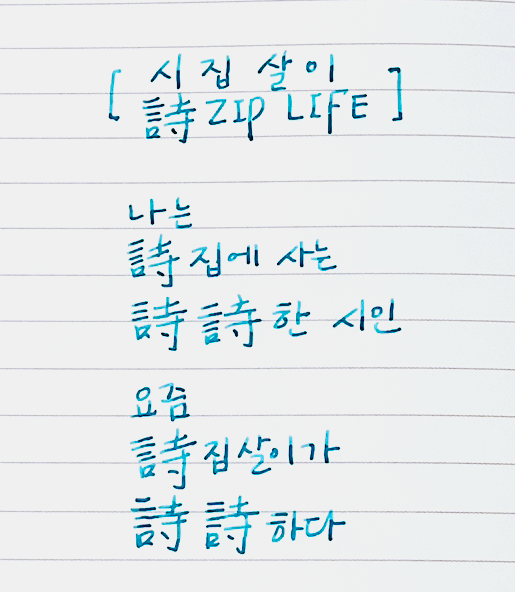 [ 시집살이
詩 ZIP LIFE ]
나는
詩집에 사는
詩詩한 시인
요즘
詩집살이가
詩詩하다